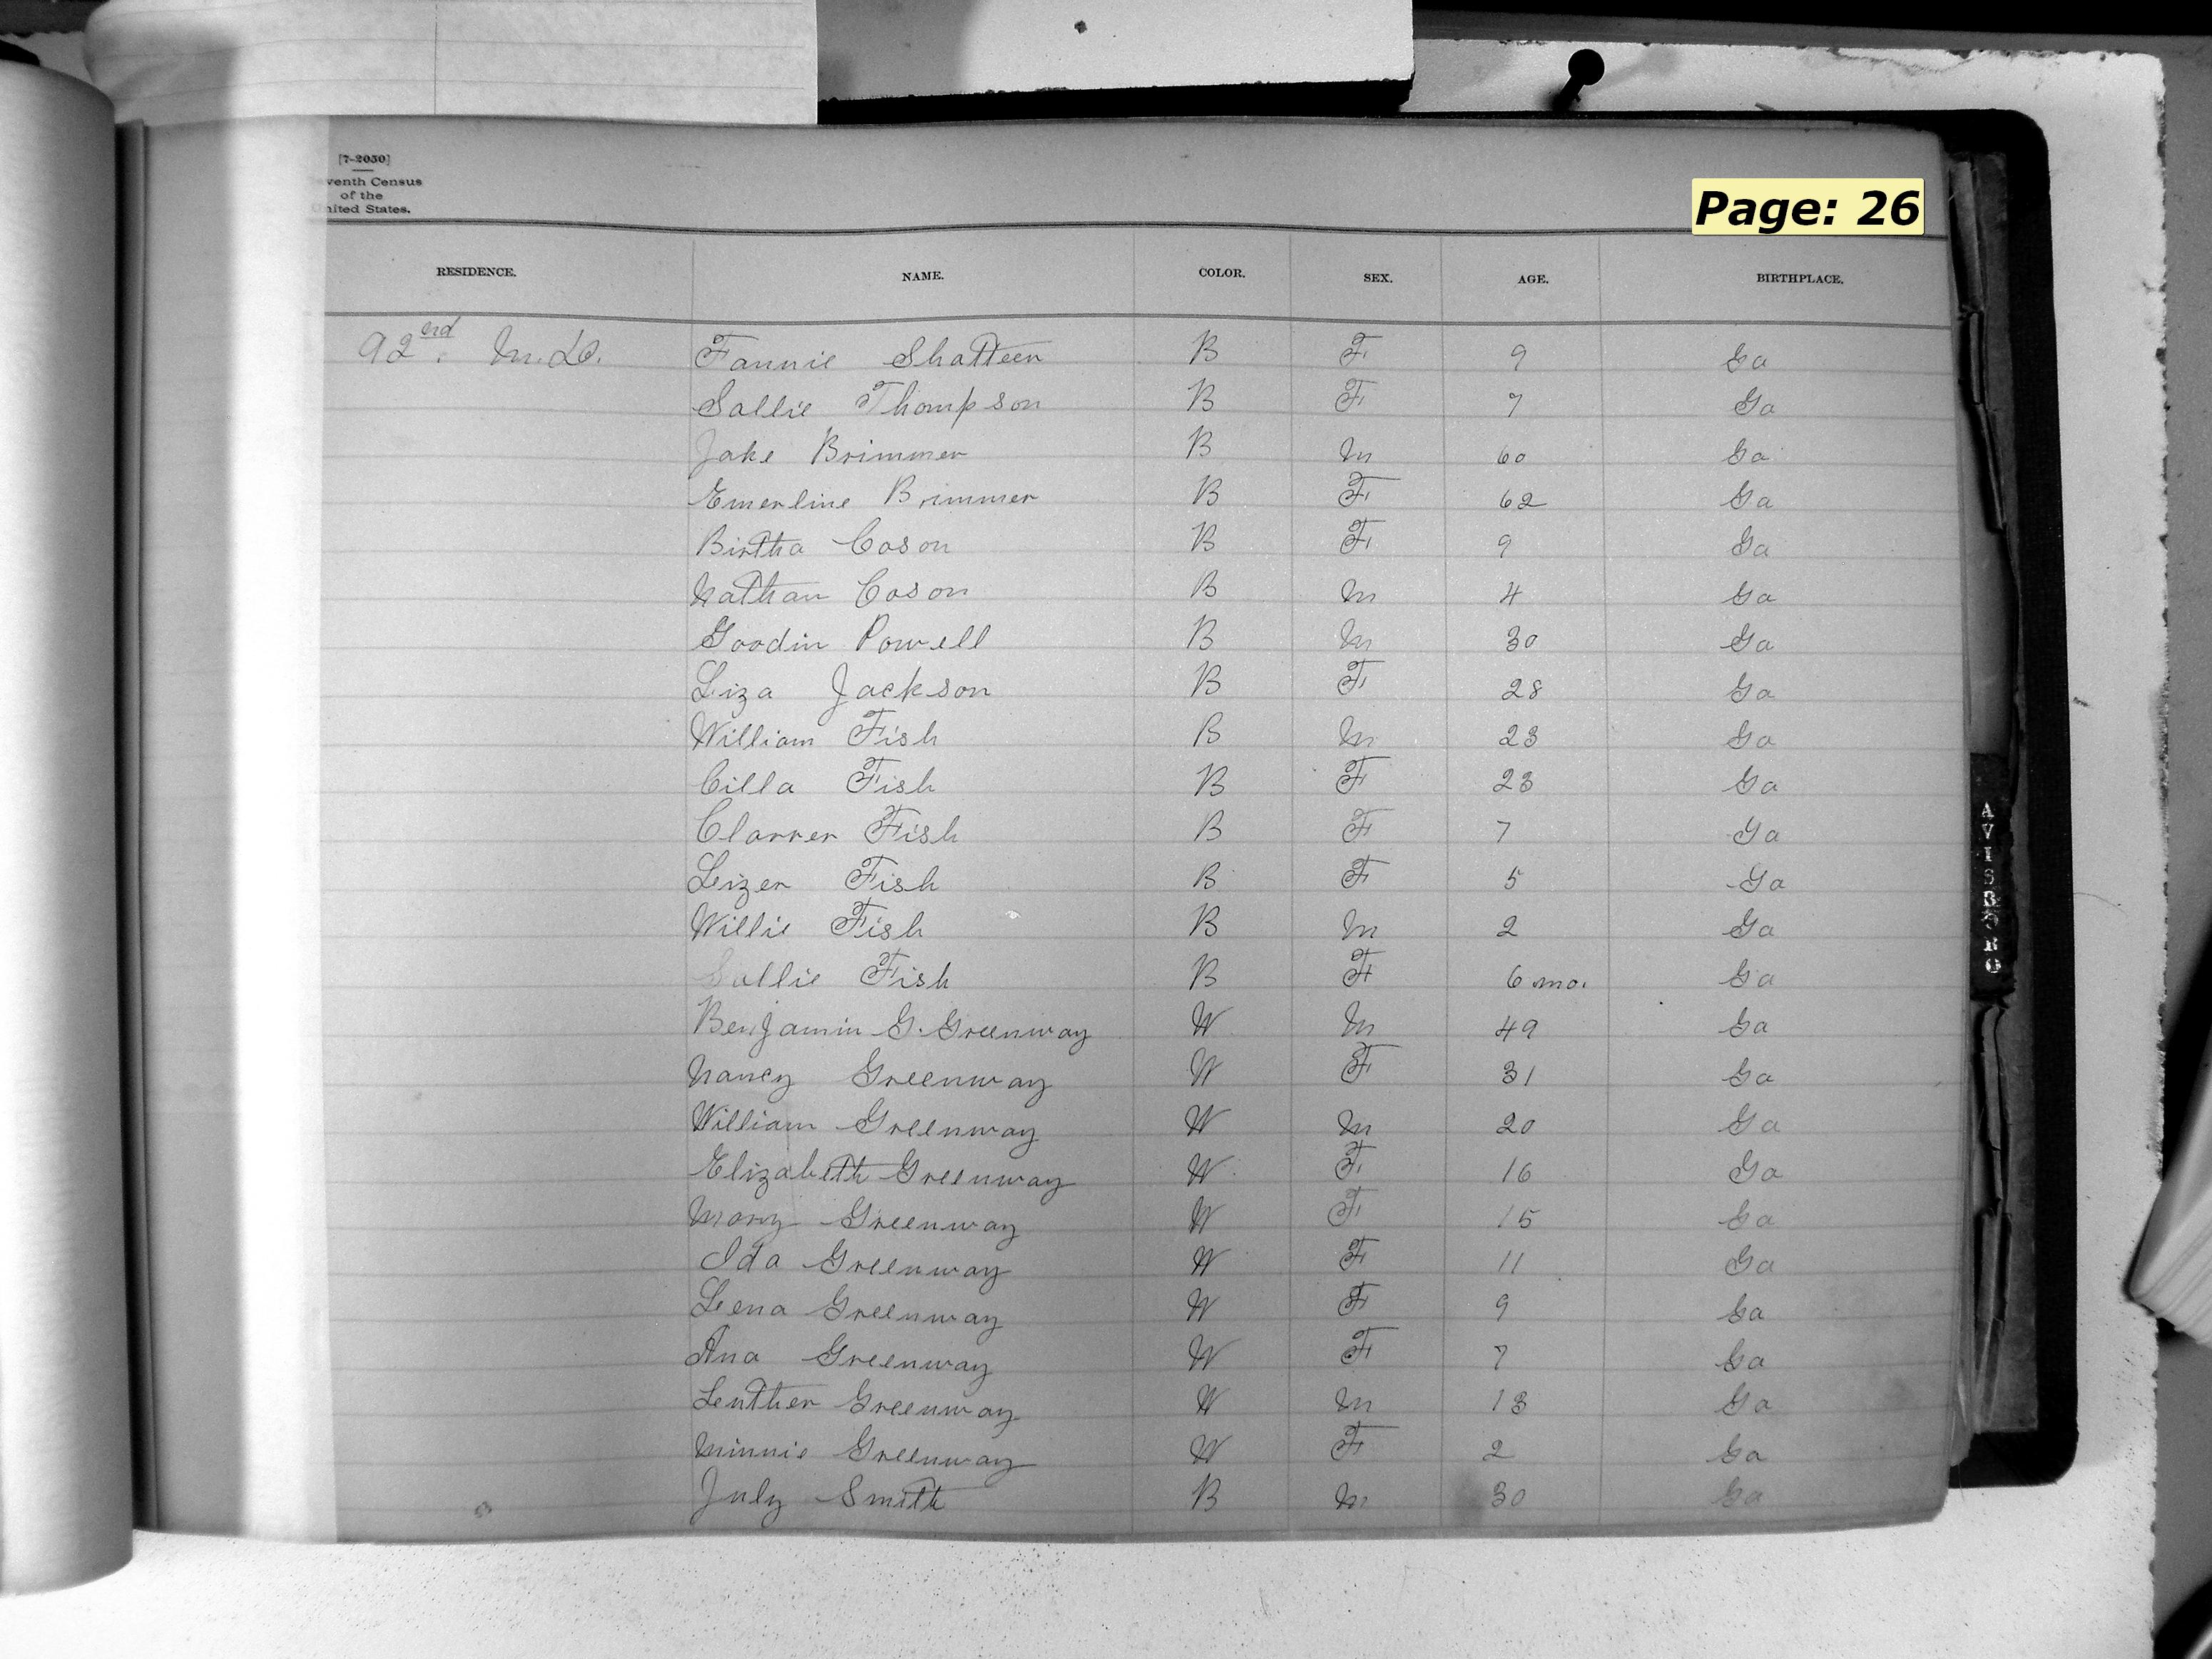 [7-2050]
venth Census
of the
nited States.
Page: 26
RESIDENCE. NAME. COLOR. SEX. AGE. BIRTHPLACE.
92nd. M. D. Fannie Shatteen B F 9 Ga
Sallie Thompson B F 7 Ga
Jake Brimmer B M 60 Ga
Emerline Brimmer B F 62 Ga
Birtha Cason B F 9 Ga
Nathan Cason B M 4 Ga
Goodin Powell B M 30 Ga
Liza Jackson B F 28 Ga
William Fish B M 23 Ga
Cilla Fish B F 23 Ga
Clarrer Fish B F 7 Ga
Leizer Fish B F 5 Ga
Willie Fish B M 2 Ga
Sallie Fish B F 6 mo. Ga
Benjamin G. Greenway W M 49 Ga
Nancy Greenway W F 31 Ga
William Greenway W M 20 Ga
Elizabeth Greenway W F 16 Ga
Mary Greenway W F 15 Ga
Ida Greenway W F 11 Ga
Leena Greenway W F 9 Ga
Ana Greenway W F 7 Ga
Leuther Greenway W M 13 Ga
Minnie Greenway W F 2 Ga
July Smith B M 30 Ga